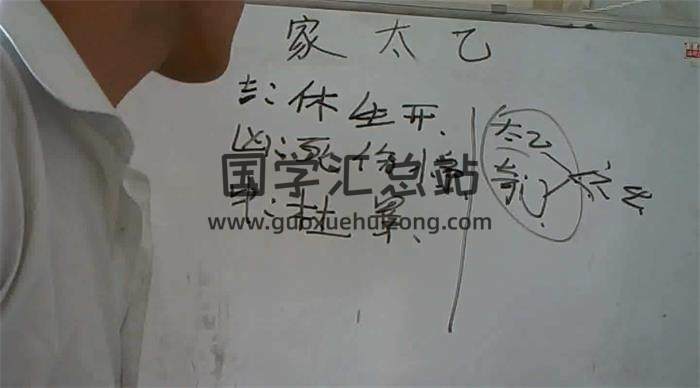 家太乙
吉:休生开、
凶:死伤惊
平:杜景、
太乙
奇门
六壬
国学汇总站
www.guoxuehuizong.com